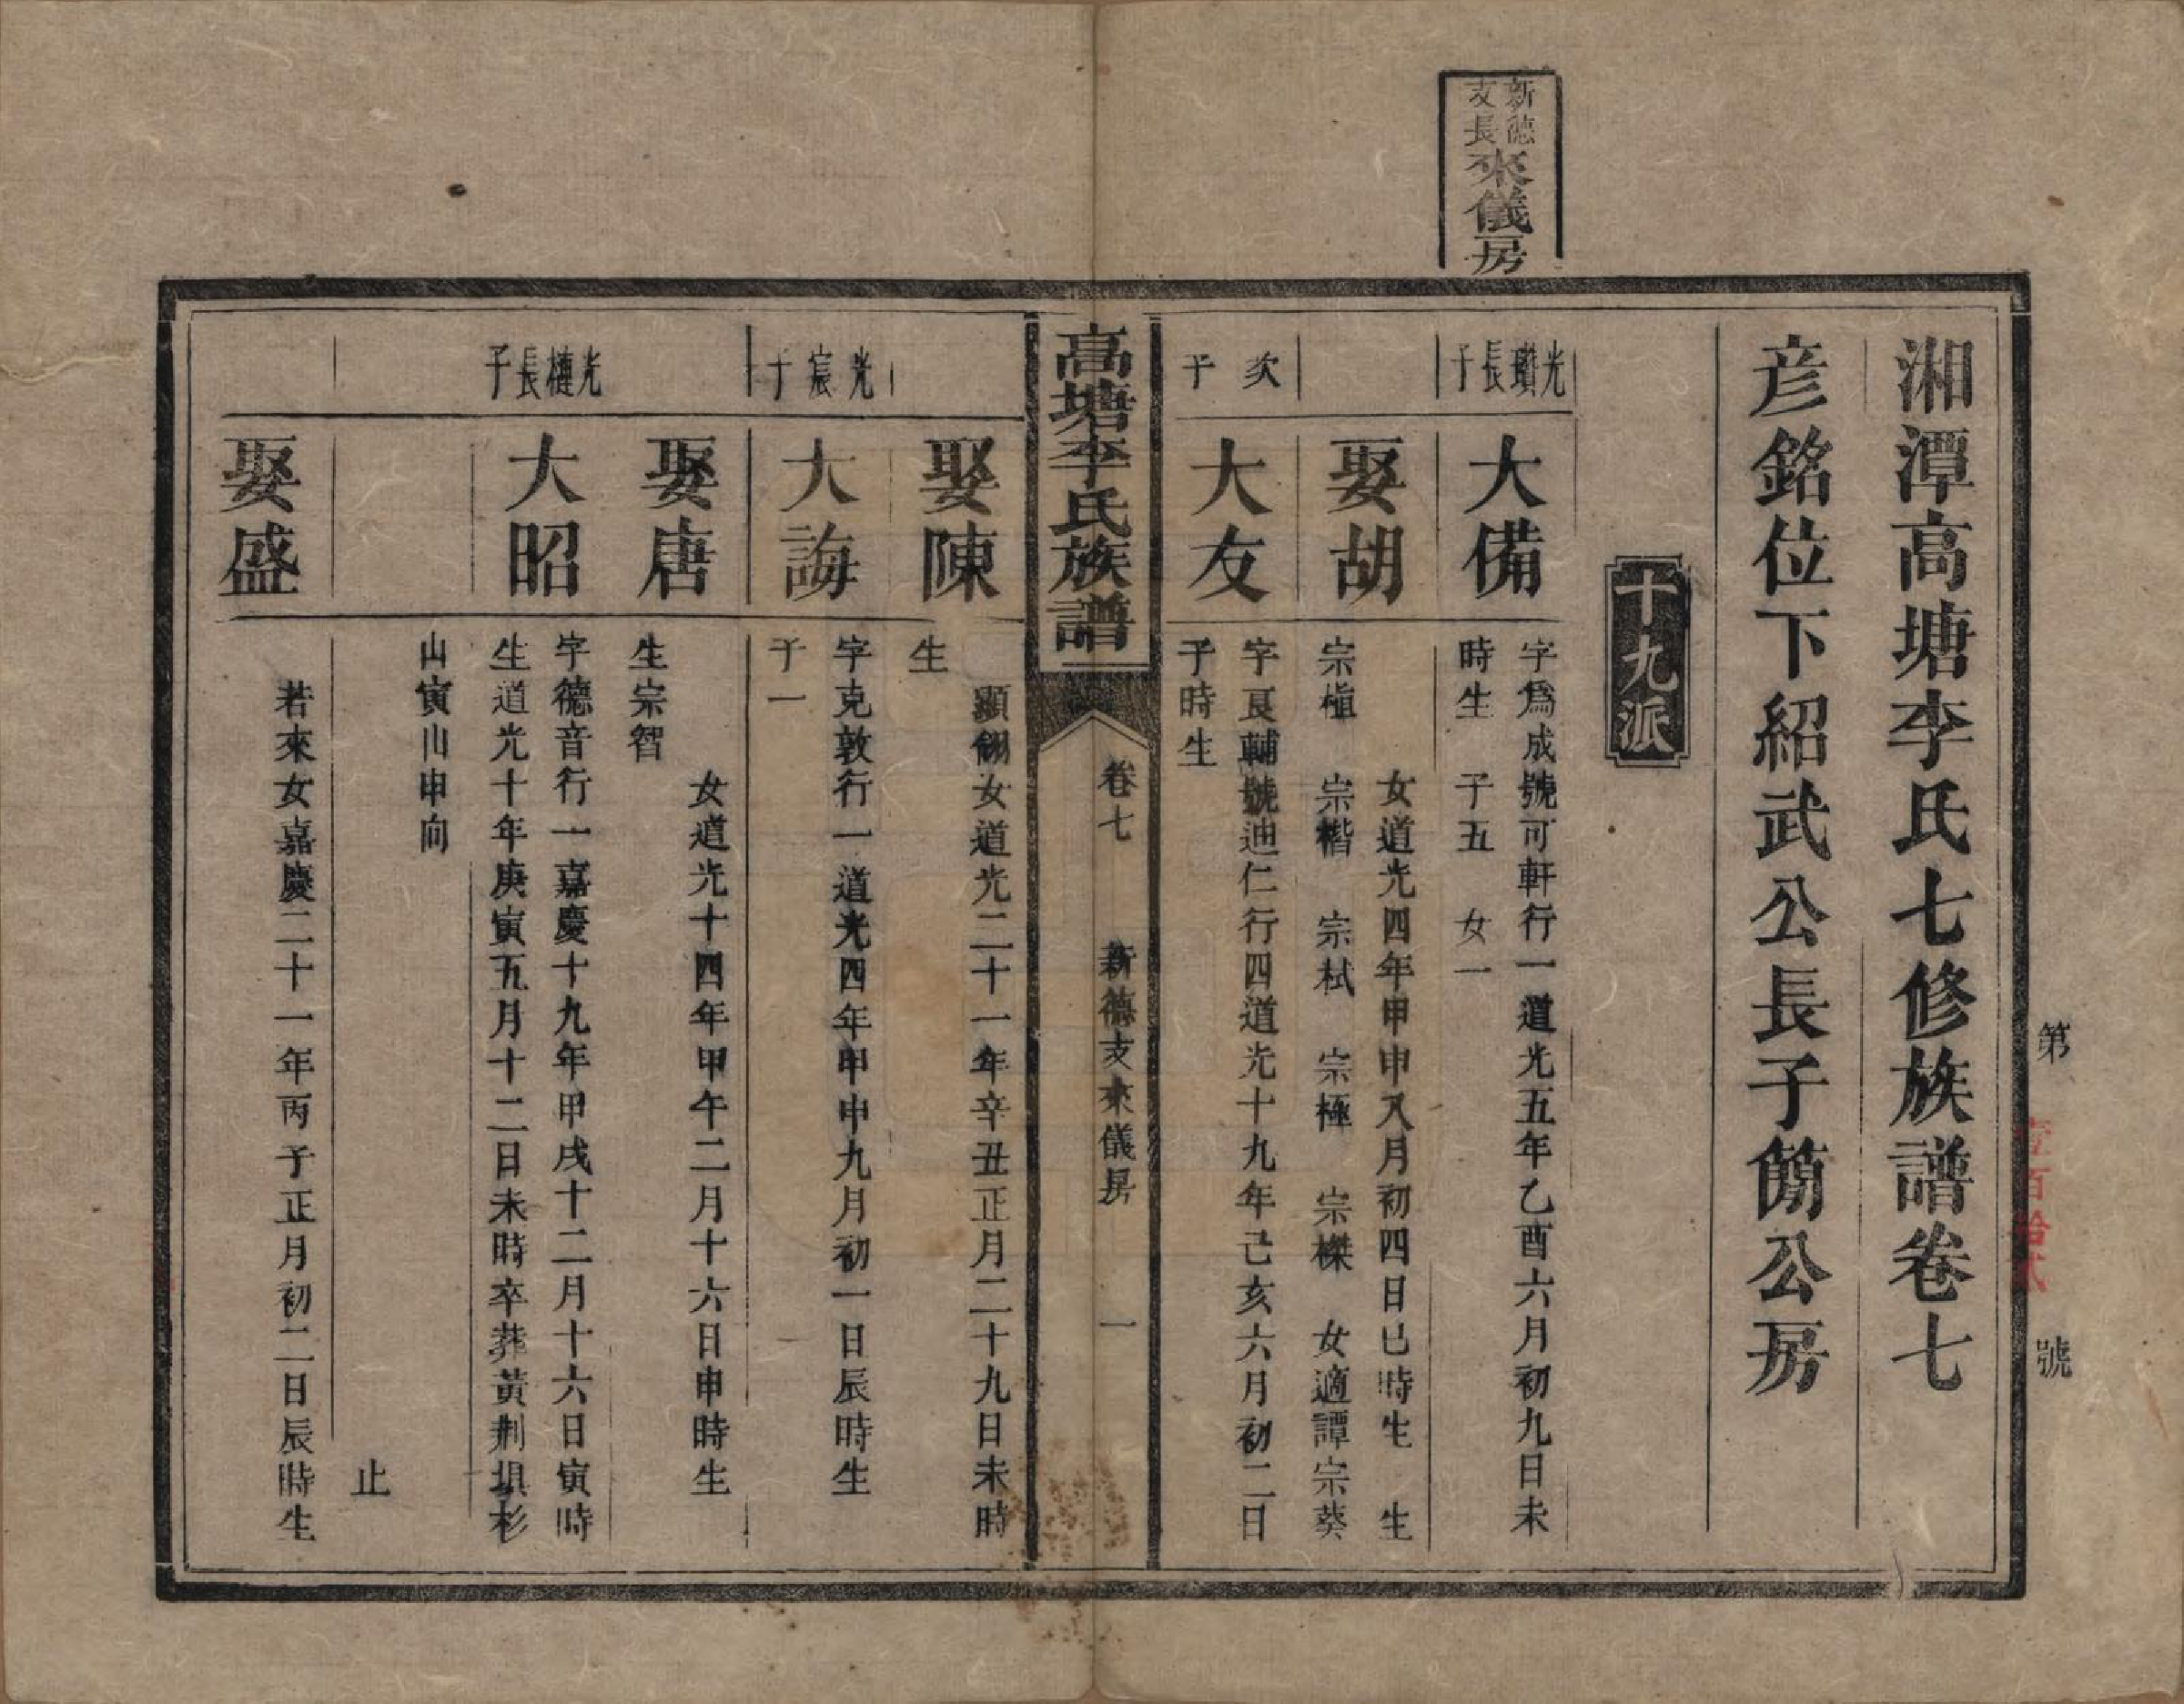 新德
支長
來儀房
湘潭高塘李氏七修族譜卷七
彦銘位下紹武公長子簡公房
十九派
光瓚長子
大備
字爲成號可軒行一道光五年乙酉六月初九日未
時生 子五 女一
娶胡
女道光四年甲申八月初四日巳時生 生
宗植 宗楷 宗栻 宗極 宗櫸 女適譚宗葵
次子
大友
字良輔號迪仁行四道光十九年己亥六月初二日
子時生
高塘李氏族譜
卷七
新德支來儀房
一
娶陳
顯翎女道光二十一年辛丑正月二十九日未時
生
光宸子
大誨
字克敦行一道光四年甲申九月初一日辰時生
子一
娶唐
女道光十四年甲午二月十六日申時生
生宗智
光槤長子
大昭
字德音行一嘉慶十九年甲戌十二月十六日寅時
生道光十年庚寅五月十二日未時卒葬黃荆塤杉
山寅山申向
止
娶盛
若來女嘉慶二十一年丙子正月初二日辰時生
第 壹百拾弍 號